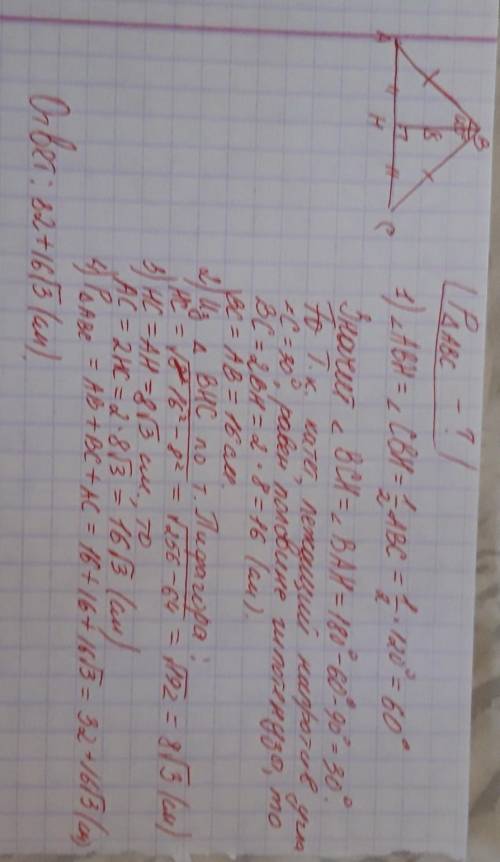 P△ABC - ?
B
120°
8
A
H
C
1) ∠ABH = ∠CBH = 1/2 ABC = 1/2 · 120° = 60°
Значит ∠BCH = ∠BAH = 180° - 60° - 90° = 30°.
Т.к. катет, лежащий напротив угла
∠C = 30°, равен половине гипотенузо, то
BC = 2BH = 2 · 8 = 16 (см).
BC = AB = 16 см.
2) Из △ BHC по т. Пифагора:
HC = √16² - 8² = √256 - 64 = √192 = 8√3 (см)
3) HC = AH = 8√3 см, то
AC = 2HC = 2 · 8√3 = 16√3 (см)
4) P△ABC = AB + BC + AC = 16 + 16 + 16√3 = 32 + 16√3 (см)
Ответ: 32 + 16√3 (см)